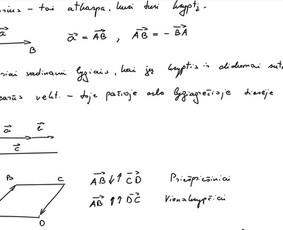 tai atkarpa, kuri turi kryptį.
a⃗
B
a⃗ = AB⃗ , AB⃗ = − BA⃗
vadinami lygiais, kai jų kryptis ir didumai
vekt. – toje pačioje arba lygiagrečioje tiesėje
a⃗
c⃗
B C
AB⃗ ↓↑ CD⃗ Priešpriešiniai
AB⃗ ↑↑ DC⃗ Vienakrypčiai
D